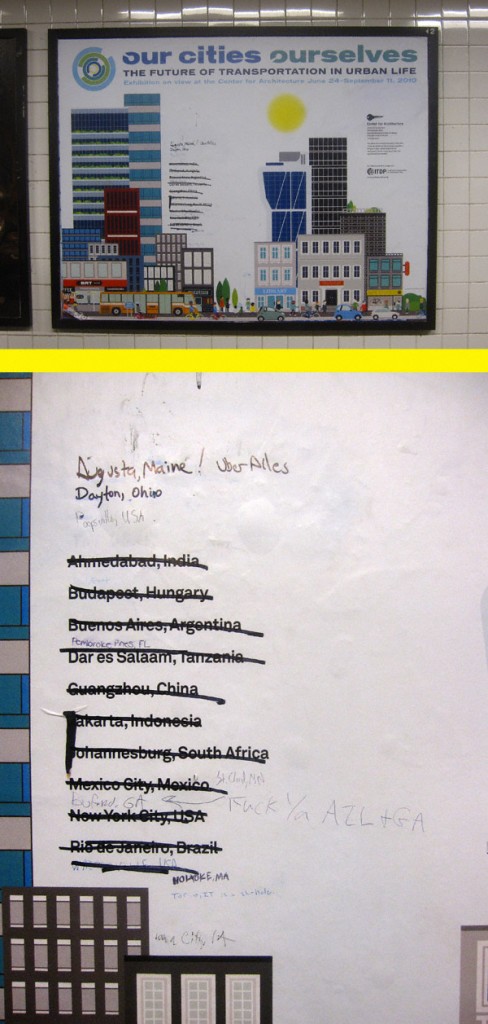 our cities ourselves
THE FUTURE OF TRANSPORTATION IN URBAN LIFE
Exhibition on view at the Center for Architecture June 24–September 11, 2010
BRT
Augusta, Maine! Uber Alles
Dayton, Ohio
Poopsville, USA
Ahmedabad, India
Budapest, Hungary
Buenos Aires, Argentina
Pembroke Pines, FL
Dar es Salaam, Tanzania
Guangzhou, China
Jakarta, Indonesia
Johannesburg, South Africa
St. Cloud, MN
Mexico City, Mexico
Buford, GA
Fuck Ya AZL + GA
New York City, USA
Rio de Janeiro, Brazil
USA
HOLYOKE, MA
Iowa City, IA